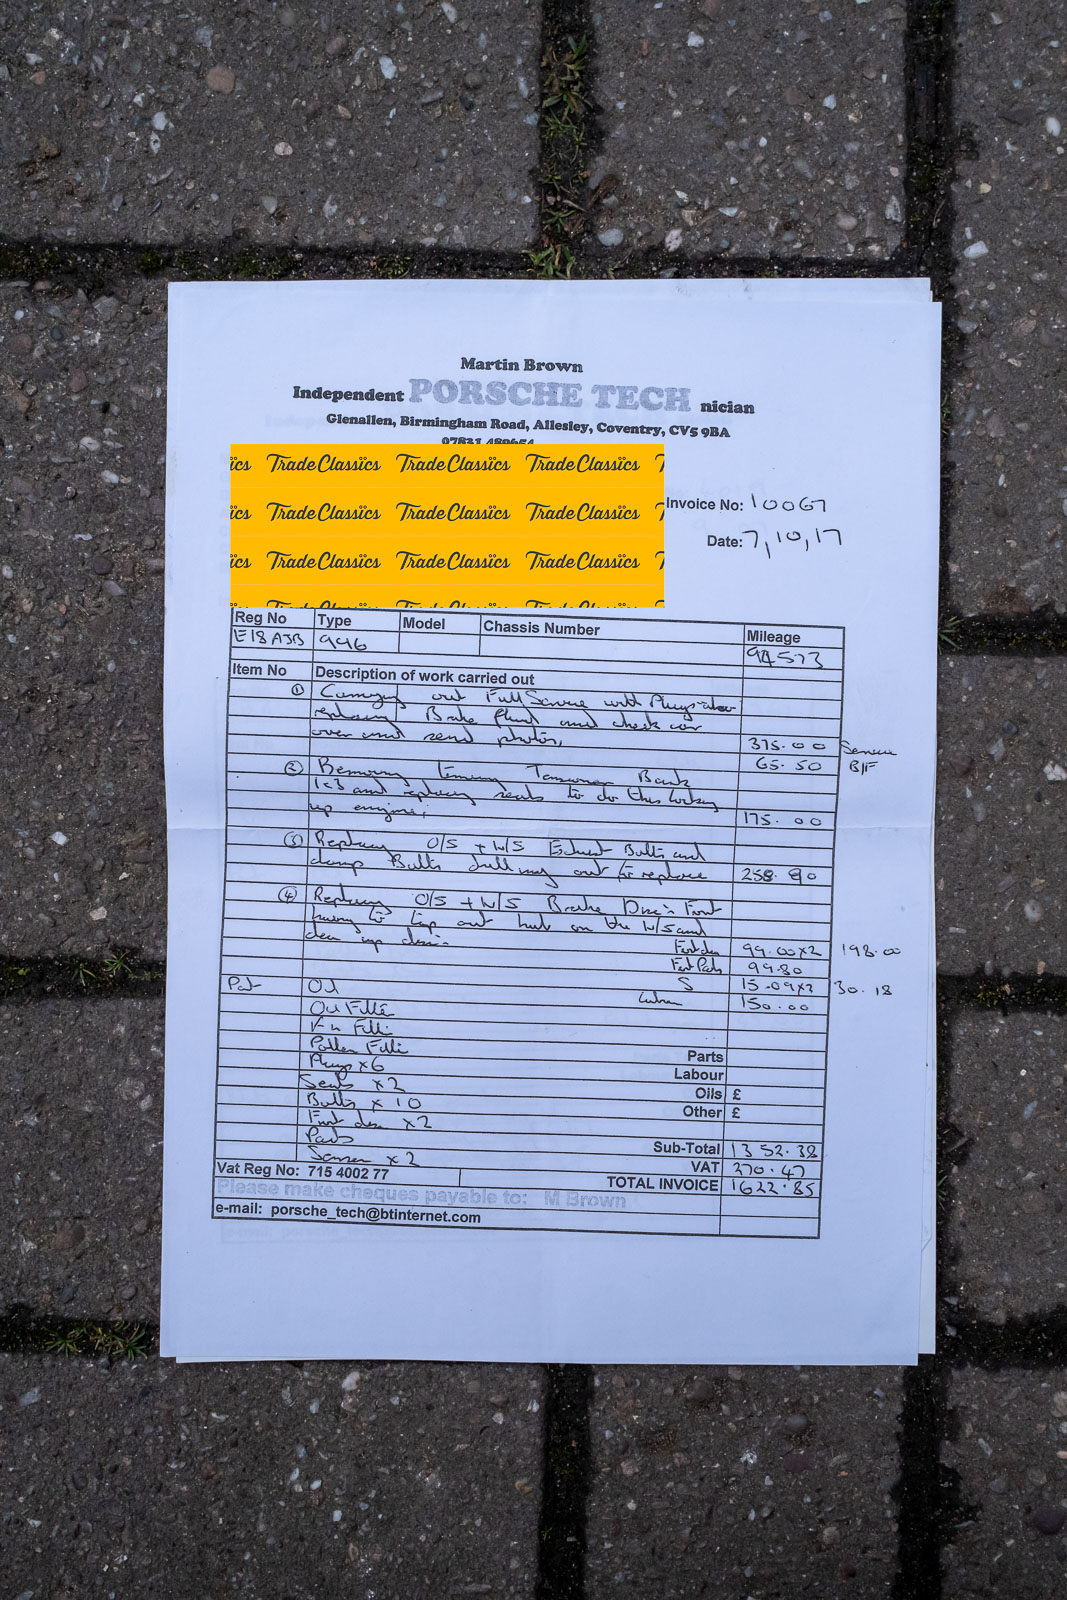 Martin Brown
Independent PORSCHE TECH nician
Glenallen, Birmingham Road, Allesley, Coventry, CV5 9BA
ics TradeClassics TradeClassics TradeClassics T
ics TradeClassics TradeClassics TradeClassics T
Invoice No: 10067
ics TradeClassics TradeClassics TradeClassics T
Date: 7,10,17
Reg No Type Model Chassis Number Mileage
E18 AJB 996 94573
Item No Description of work carried out
① Carrying out Full Service with Plugs also
replacing Brake fluid and check car
over and send photos,
375.00 Service
65.50 B/F
② Removing timing Tensioner Bank
1&3 and replacing seals to do this locking
up engine,
175.00
③ Replacing O/S + N/S Exhaust Bolts and
clamp Bolts drilling out to replace 258.90
④ Replacing O/S + N/S Brake Discs Front
having to tap out hub on the N/S and
clean up
Front disc 99.00x2 198.00
Front Pads 99.80
S 15.09x2 30.18
Part Oil
Labour 150.00
Oil Filter
Filter
Pollen Filter
Parts
Plugs x6
Labour
Seals x2
Oils £
Bolts x 10
Other £
Front disc x2
Pads
Sub-Total 1352.38
Sensor x2
VAT 270.47
Vat Reg No: 715 4002 77
TOTAL INVOICE 1622.85
Please make cheques payable to: M Brown
e-mail: porsche_tech@btinternet.com